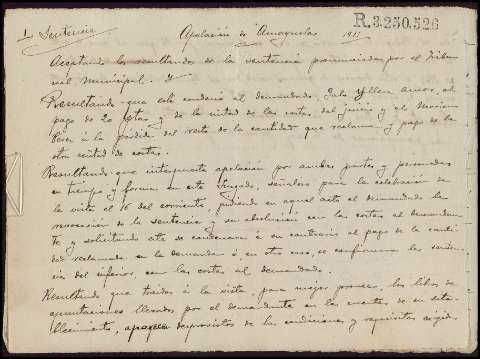 R.3.250.526
1 Sentencia Apelación de Amayuelas 1911
Aceptando los resultandos de la sentencia pronunciada por el Tribu-
nal Municipal. Y
Resultando que esta condenó al demandado, Amor, al
pago de 20 ptas y de la mitad de las costas del juicio y al Mariano
á la pérdida del resto de la cantidad que reclama y pago de la
otra mitad de costas.
Resultando que interpuesta apelación por ambas partes y personadas
en tiempo y forma en este Juzgado, señalose para la celebración de
la vista el 16 del corriente, pidiendo en aquel acto el demandado la
revocación de la sentencia y su absolución con las costas al demandan-
te y solicitando este se condenara á su contrario al pago de la canti-
dad reclamada en la demanda ó, en otro caso, se confirmara la senten-
cia del inferior, con las costas al demandado.
Resultando que traidos á la vista para mejor proveer, los libros de
apuntaciones llevados por el demandante en las cuentas de su esta-
blecimiento, aparecen desprovistos de las condiciones y requisitos exigid.